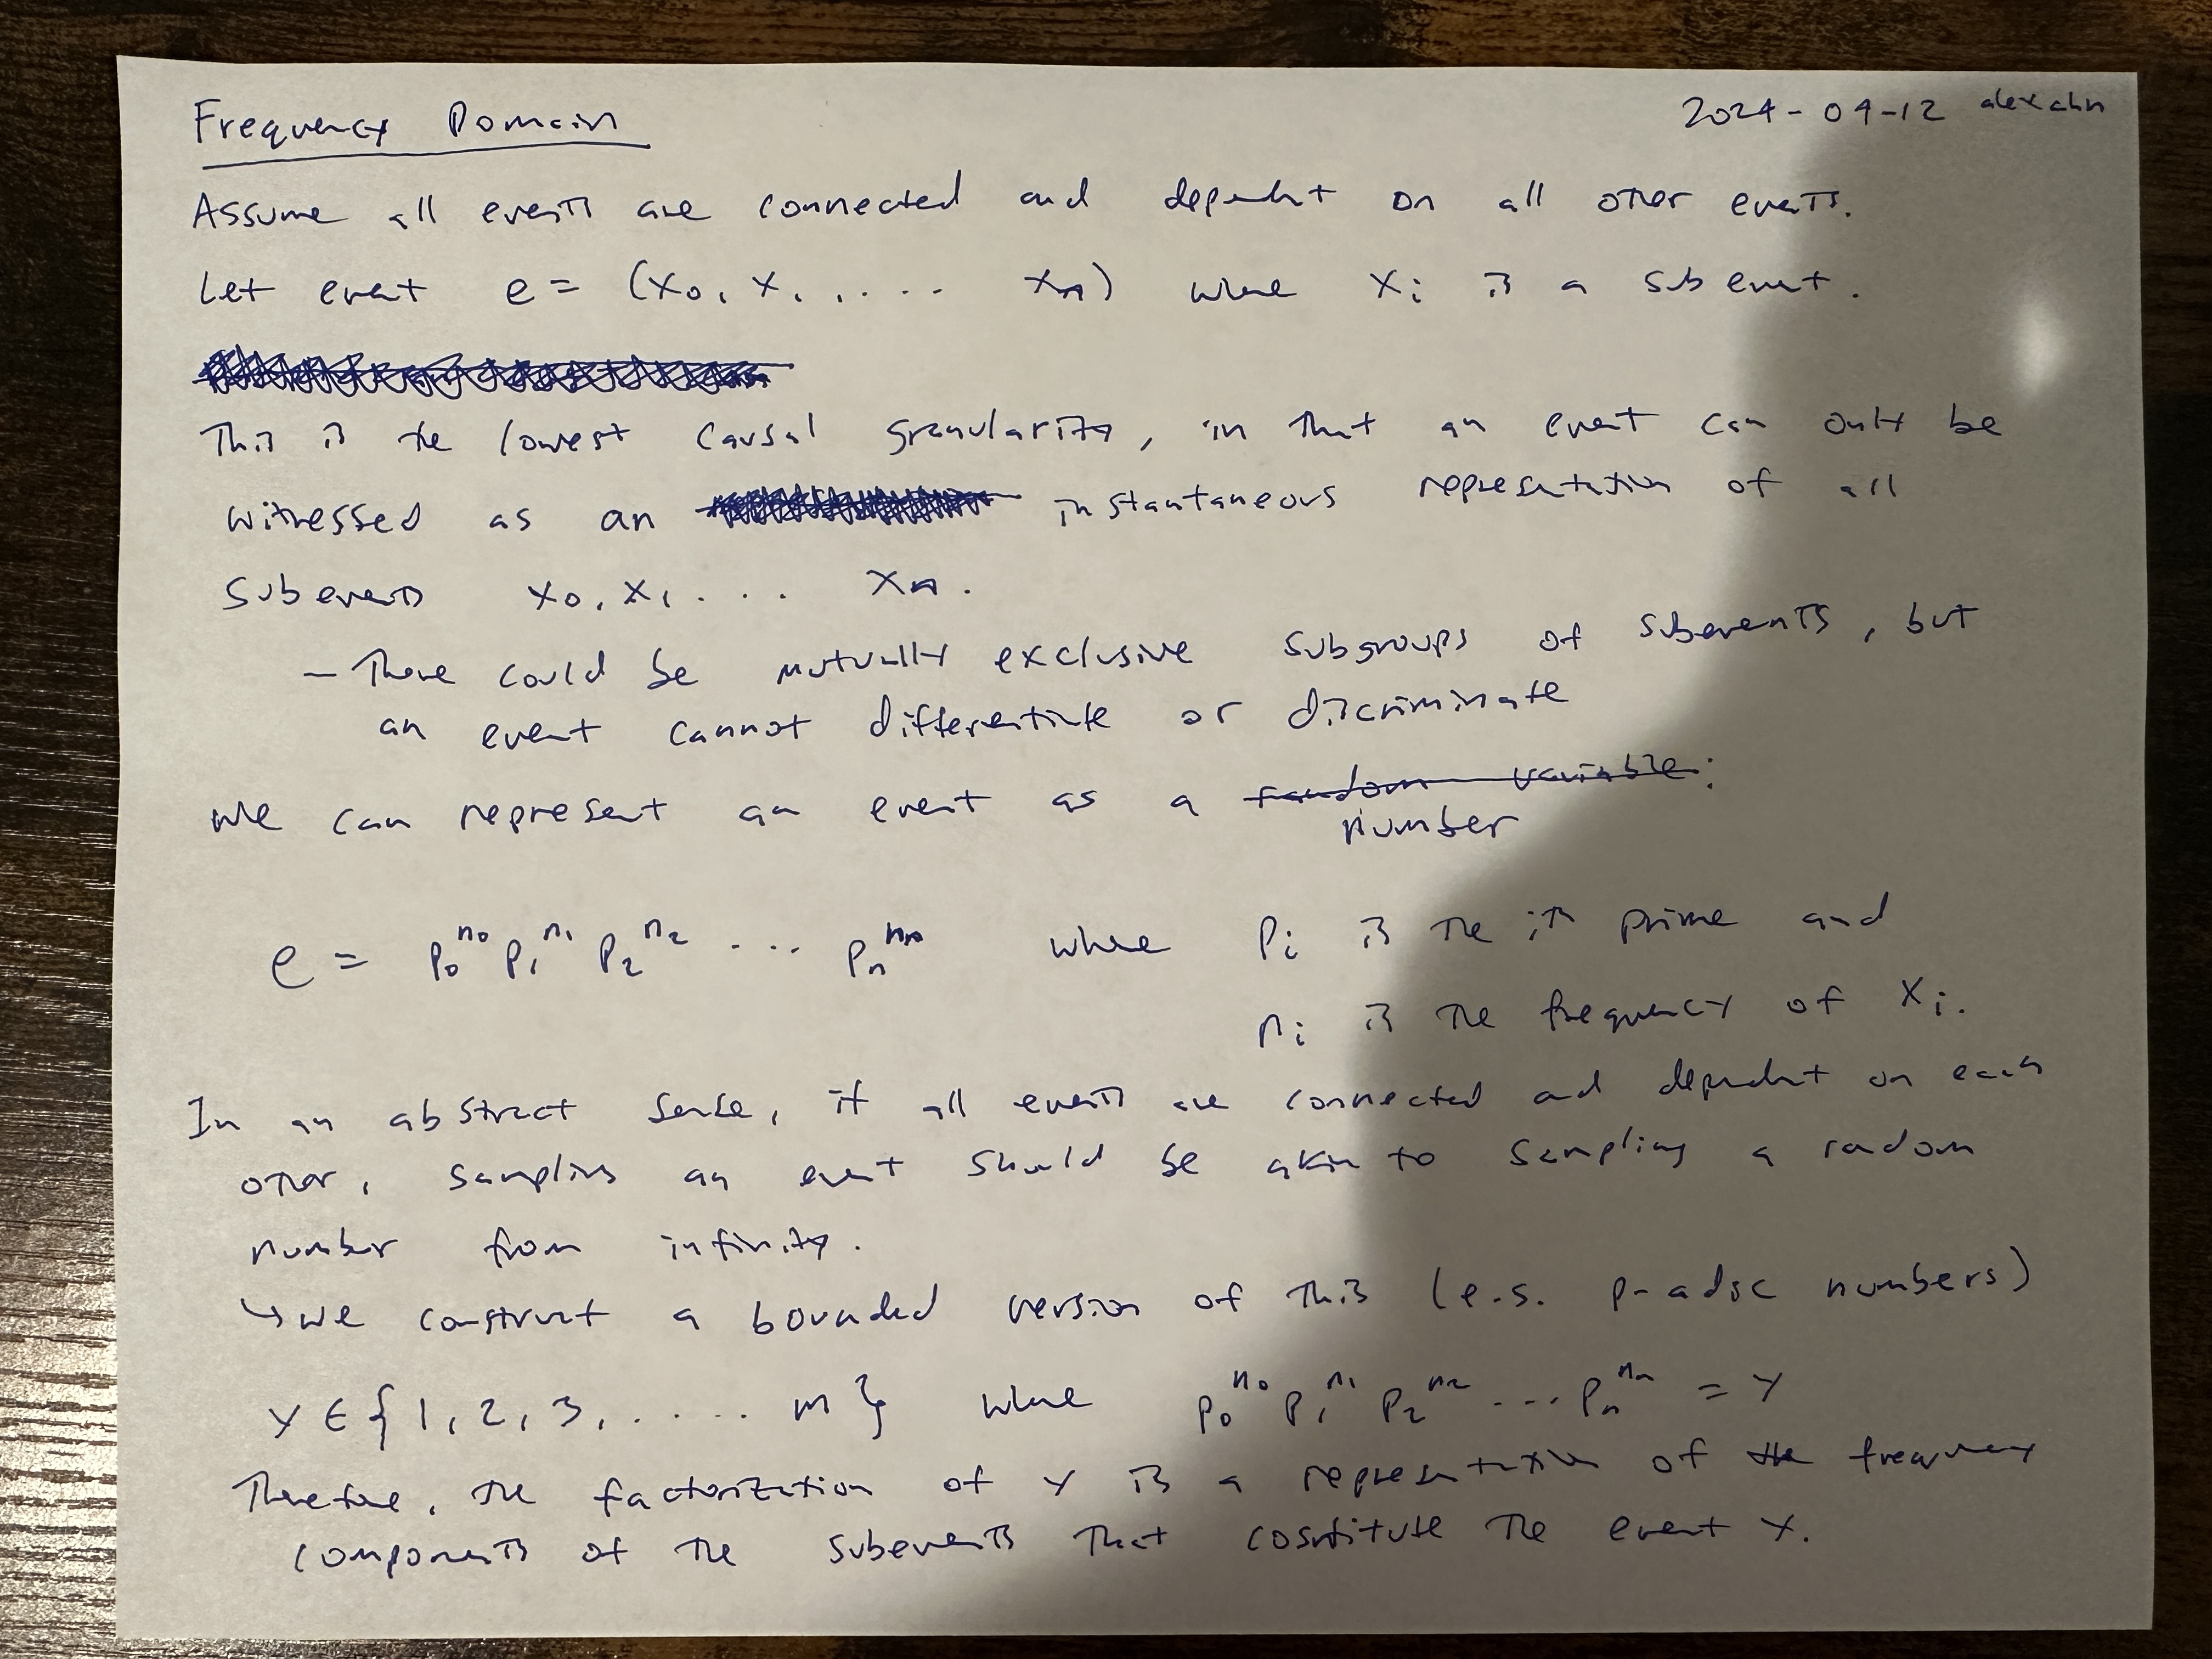 Frequency Domain
2024-09-12 alexahn
Assume all events are connected and dependent on all other events.
Let event e = (x₀, x₁, .... xₙ) where xᵢ is a subevent.
This is the lowest causal granularity, in that an event can only be
witessed as an instantaneous representation of all
subevents x₀, x₁ ... xₙ.
— There could be mutually exclusive subgroups of subevents, but
an event cannot differentiate or discriminate
We can represent an event as a random variable:
number
e = p₀^n₀ p₁^n₁ p₂^n₂ ... pₙ^nₙ where pᵢ is the ith prime and
nᵢ is the frequency of xᵢ.
In an abstract sense, if all events are connected and dependent on each
other, sampling an event should be akin to sampling a random
number from infinity.
↳ we construct a bounded version of this (e.g. p-adic numbers)
y ∈ {1, 2, 3, ..... m} where p₀^n₀ p₁^n₁ p₂^n₂ ... pₙ^nₙ = y
Therefore, the factorization of y is a representation of the frequency
components of the subevents that cosntitute the event y.